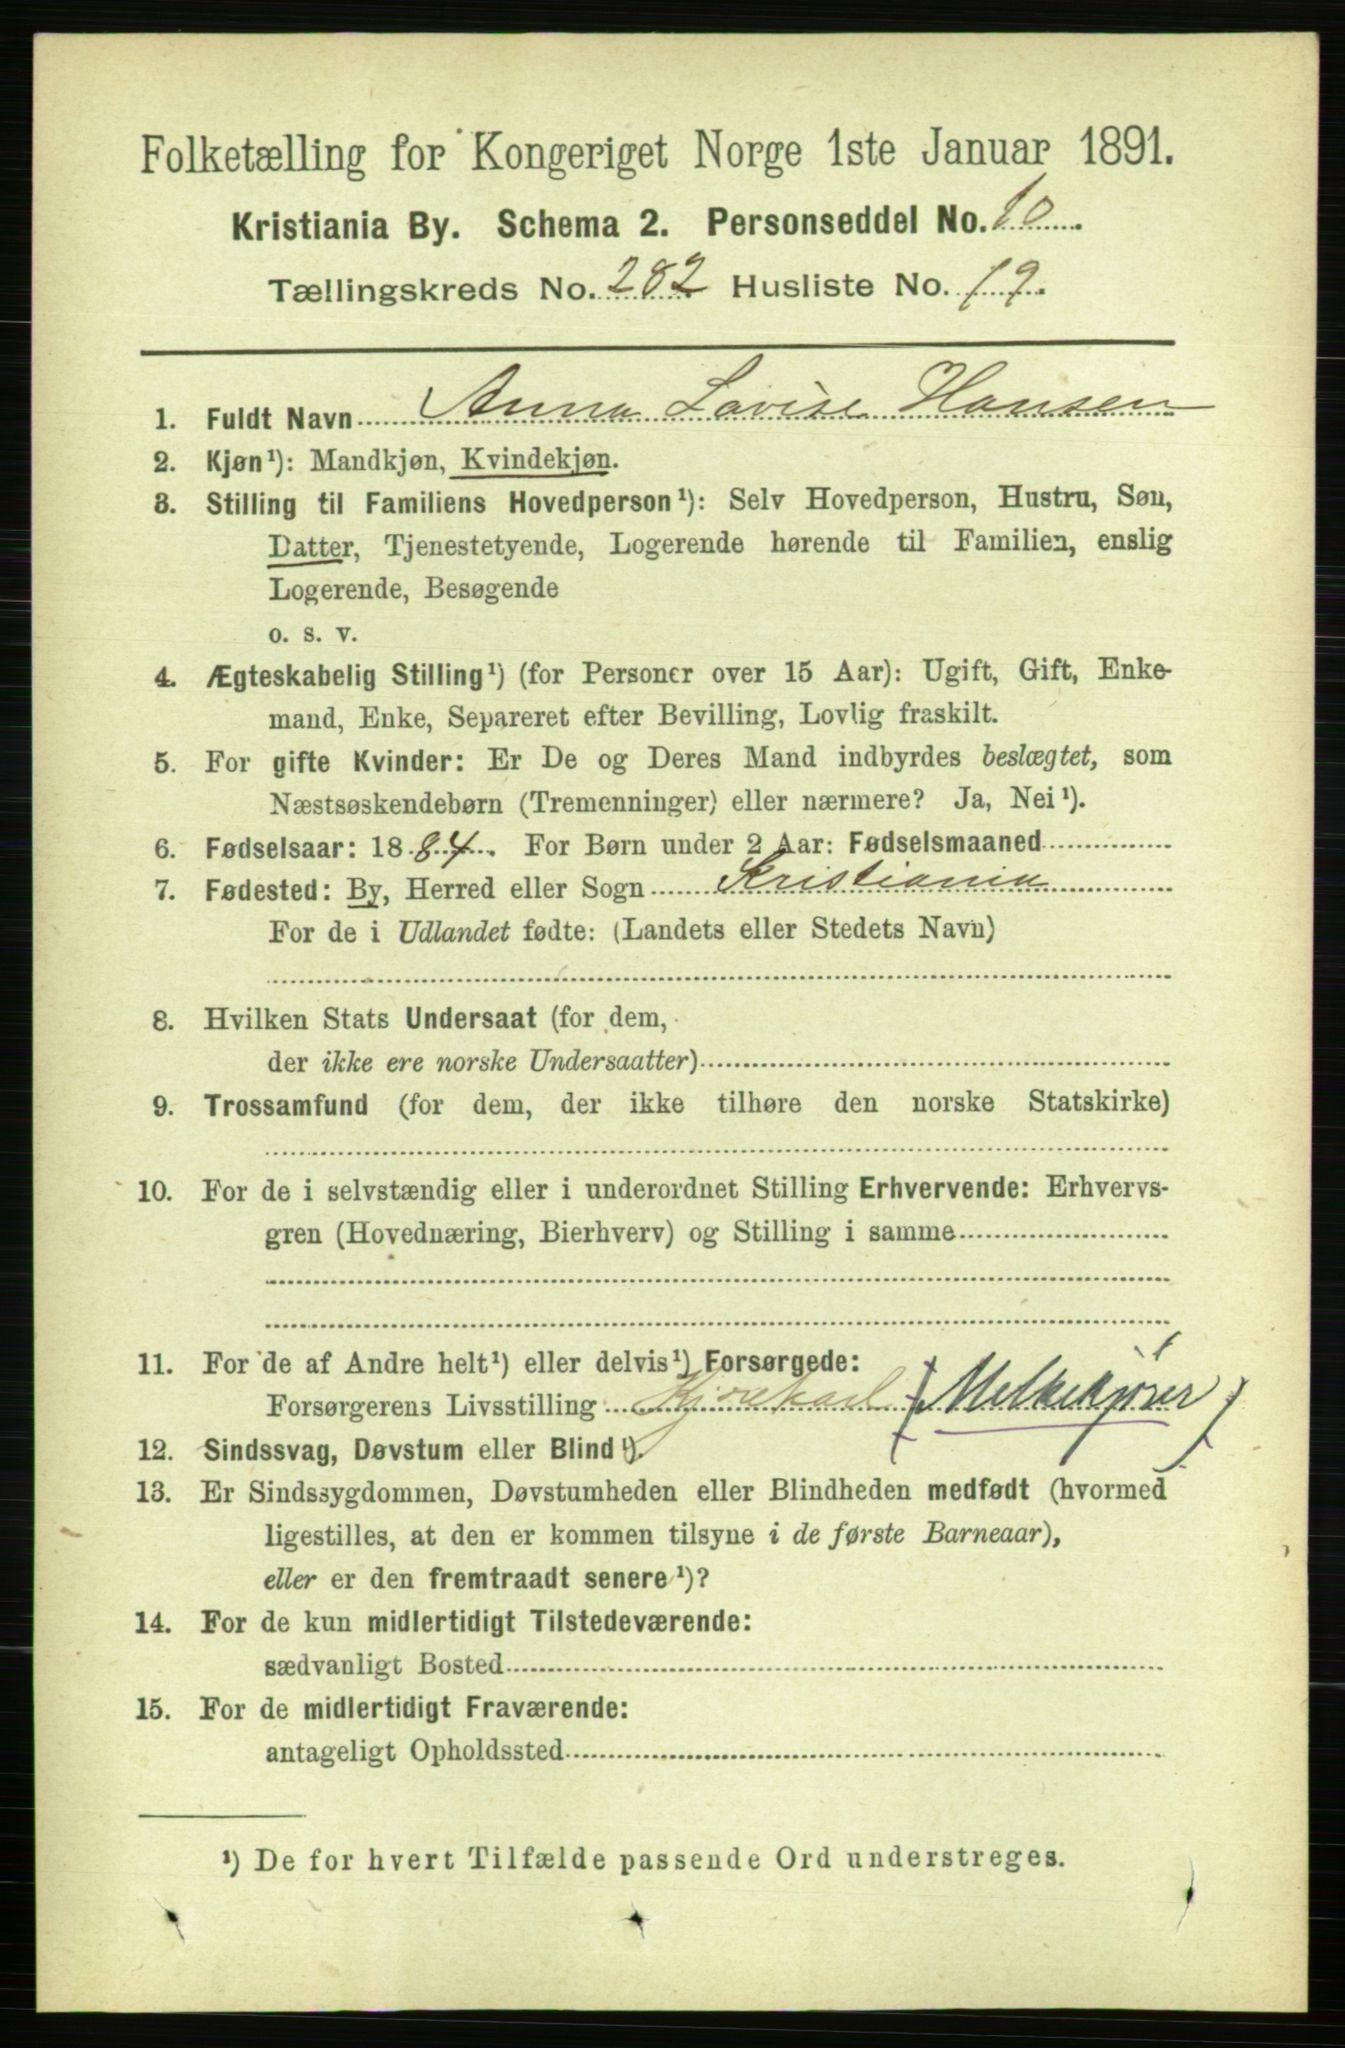 Folketælling for Kongeriget Norge 1ste Januar 1891.
Kristiania By. Schema 2. Personseddel No. 10.
Tællingskreds No. 282 Husliste No. 19.
1. Fuldt Navn Anna Lovise Hansen
2. Kjøn¹): Mandkjøn, Kvindekjøn.
3. Stilling til Familiens Hovedperson¹): Selv Hovedperson, Hustru, Søn,
Datter, Tjenestetyende, Logerende hørende til Familien, enslig
Logerende, Besøgende
o. s. v.
4. Ægteskabelig Stilling¹) (for Personer over 15 Aar): Ugift, Gift, Enke-
mand, Enke, Separeret efter Bevilling, Lovlig fraskilt.
5. For gifte Kvinder: Er De og Deres Mand indbyrdes beslægtet, som
Næstsøskendebørn (Tremenninger) eller nærmere? Ja, Nei¹).
6. Fødselsaar: 1884. For Børn under 2 Aar: Fødselsmaaned
7. Fødested: By, Herred eller Sogn Kristiania
For de i Udlandet fødte: (Landets eller Stedets Navn)
8. Hvilken Stats Undersaat (for dem,
der ikke ere norske Undersaatter)
9. Trossamfund (for dem, der ikke tilhøre den norske Statskirke)
10. For de i selvstændig eller i underordnet Stilling Erhvervende: Erhvervs-
gren (Hovednæring, Bierhverv) og Stilling i samme
11. For de af Andre helt¹) eller delvis¹) Forsørgede:
Forsørgerens Livsstilling Kjørekarl (Melkekjører)
12. Sindssvag, Døvstum eller Blind¹).
13. Er Sindssygdommen, Døvstumheden eller Blindheden medfødt (hvormed
ligestilles, at den er kommen tilsyne i de første Barneaar),
eller er den fremtraadt senere¹)?
14. For de kun midlertidigt Tilstedeværende:
sædvanligt Bosted
15. For de midlertidigt Fraværende:
antageligt Opholdssted
¹) De for hvert Tilfælde passende Ord understreges.